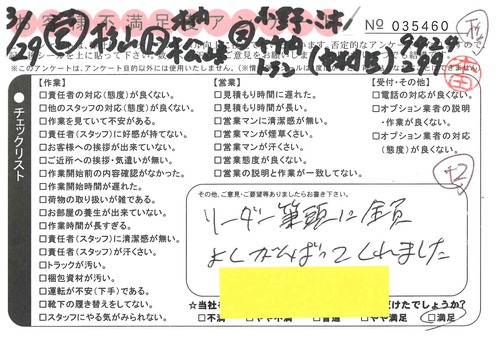 No 035460
3/29
※このアンケートは、アンケート目的以外には使用いたしません。
チェックリスト
【作業】
□責任者の対応(態度)が良くない。
□他のスタッフの対応(態度)が良くない。
□作業を見ていて不安がある。
□責任者(スタッフ)に好感が持てない。
□お客様への挨拶が出来ていない。
□ご近所への挨拶・気遣いが無い。
□作業開始前の内容確認がなかった。
□作業開始時間が遅れた。
□荷物の取り扱いが雑である。
□お部屋の養生が出来ていない。
□作業時間が長すぎる。
□責任者(スタッフ)に清潔感が無い。
□責任者(スタッフ)が汗くさい。
□トラックが汚い。
□梱包資材が汚い。
□運転が不安(下手)である。
□靴下の履き替えをしてない。
□スタッフにやる気がみられない。
【営業】
□見積もり時間に遅れた。
□見積もり時間が長い。
□営業マンに清潔感が無い。
□営業マンが煙草くさい。
□営業マンが汗くさい。
□営業態度が良くない。
□営業の説明と作業が一致してない。
【受付・その他】
□電話の対応が良くない。
□オプション業者の説明・作業が良くない。
□オプション業者の対応(態度)が良くない。
その他、ご意見・ご要望等ありましたらお書き下さい。
リーダー筆頭に全員
よくがんばってくれました
☆当社を
だけたでしょうか?
□不満 □やや不満 □普通 □やや満足 □満足